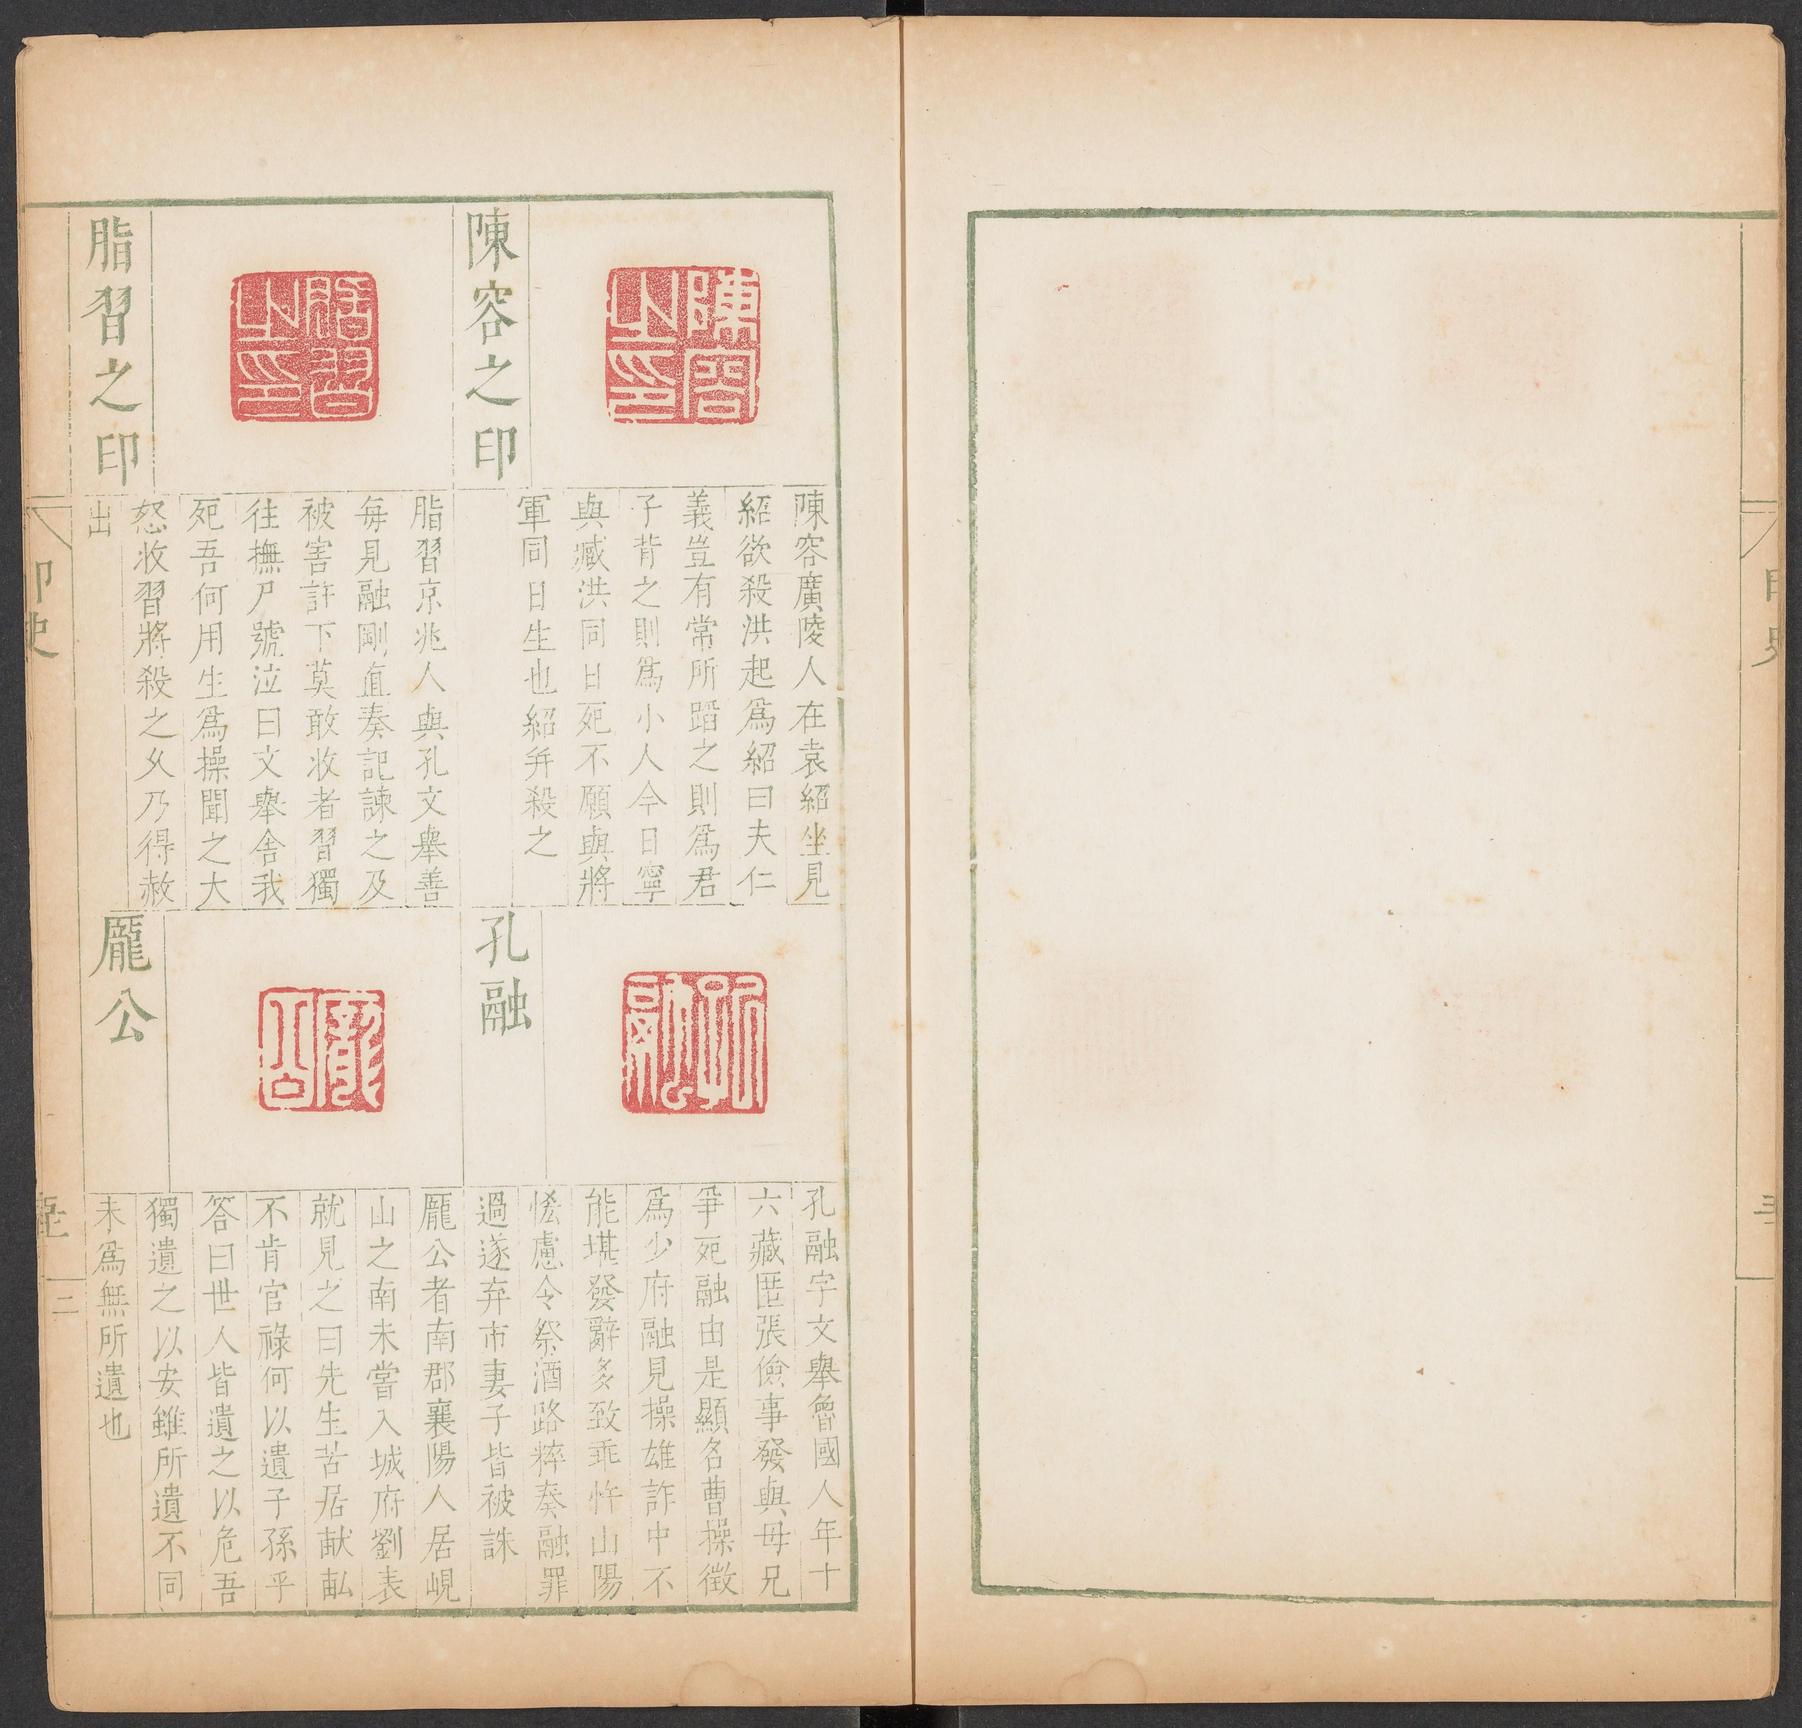 陳容之印
陳容廣陵人在袁紹坐見
紹欲殺洪起爲紹曰夫仁
義豈有常所蹈之則爲君
子背之則爲小人今日寧
與臧洪同日死不願與將
軍同日生也紹并殺之
脂習之印
脂習京兆人與孔文舉善
每見融剛直奏記諫之及
被害許下莫敢收者習獨
往撫尸號泣曰文舉舍我
死吾何用生爲操聞之大
怒收習將殺之乆乃得赦
出
孔融
孔融字文舉魯國人年十
六藏匿張儉事發與母兄
爭死融由是顯名曹操徵
爲少府融見操雄詐中不
能堪發辭多致乖忤山陽
郗慮令祭酒路粹奏融罪
過遂弃市妻子皆被誅
龐公
龐公者南郡襄陽人居峴
山之南未嘗入城府劉表
就見之曰先生苦居畎畝
不肯官祿何以遺子孫乎
答曰世人皆遺之以危吾
獨遺之以安雖所遺不同
未爲無所遺也
印史